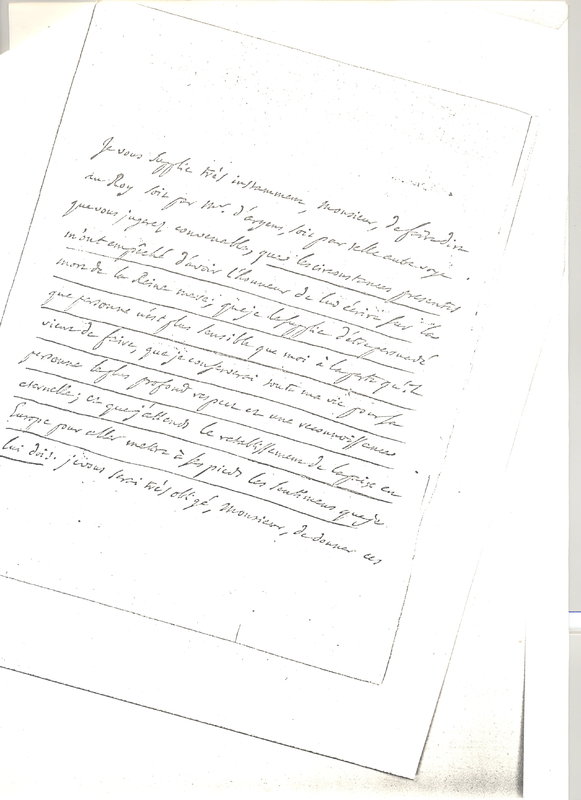 Je vous supplie très instamment, Monsieur, de faire dire
au Roy soit par Mr. d'argens, soit par telle autre voye
que vous jugerez convenable, que les circonstances presentes
m'ont empêché d'avoir l'honneur de lui écrire sur la
mort de la Reine mere; que je le supplie d'etre persuadé
que personne n'est plus sensible que moi à la perte qu'il
vient de faire, que je conserverai toute ma vie pour sa
personne le plus profond respect et une reconnoissance
eternelle; et que j'attends le retablissement de la paix en
Europe pour aller mettre à ses pieds les sentimens que je
lui dois. je vous serai très obligé, Monsieur, de donner ces